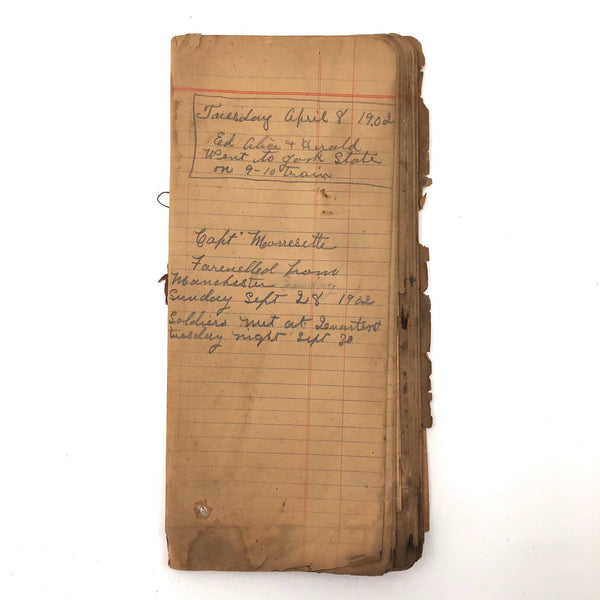 Tuesday April 8 1902
Ed Alice & Harald
Went to york State
on 9-10 train
Capt Morresette
Farewelled from
Manchester
Sunday Sept 28 1902
Soldiers met at Quarters
tuesday night Sept 30